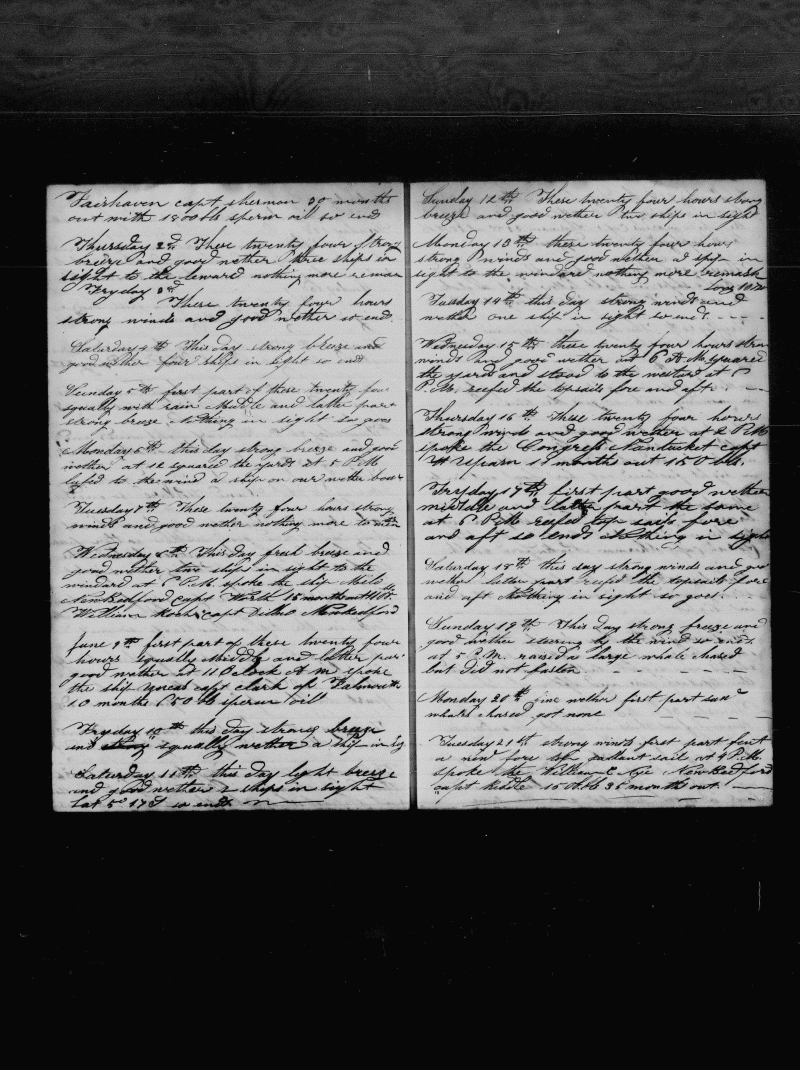 Fairhaven capt sherman 30 months
out with 1800 bb sperm oil so ends
Thursday 2d These twenty four strong
breeze and good wether three ships in
sight to the leward nothing more remar
Fryday 3d
These twenty four hours
strong winds and good wether so ends
Saturday 4th This day strong breeze and
good wether four ships in sight so ends
Sunday 5th first part of these twenty four
squally with rain Middle and latter part
strong breeze nothing in sight so goes
Monday 6th this day strong breeze and good
wether at 12 squared the yards at 5 P.M
lufed to the wind a ship on our wether bow
Tuesday 7th These twenty four hours strong
winds and good wether nothing more to
Wednesday 8th This day fresh breeze and
good wether two ships in sight to the
windard at 6 P.M. spoke the ship Milo
New Bedford capt 18 months out
William capt New Bedford
June 9th first part of these twenty four
hours squally middle and latter part
good wether at 11 O clock A m spoke
the ship Uncas capt clark of Falmouth
10 months 650 bb sperm oil
Fryday 10th this day strong breeze
and squally wether a ship in sig
Saturday 11th this day light breeze
and good wether 2 ships in sight
lat 5° 17 S so ends
Sunday 12th These twenty four hours strong
breeze and good wether two ships in sight
Monday 13th these twenty four hours
strong winds and good wether a ship in
sight to the windard nothing more remark
Long
Tuesday 14th this day strong winds and
wether one ship in sight so ends
Wednesday 15th these twenty four hours stron
winds and good wether at 6 A M squared
the yard and stood to the westard at 6
P.M. reefed the topsails fore and aft
Thursday 16th these twenty four hours
strong winds and good wether at 2 P.M
spoke the Congress Nantucket capt
17 months out 150 bbs.
Fryday 17th first part good wether
middle and latter part the same
at 6 P.M reefed top sails fore
and aft so ends nothing in sight
Saturday 18th this day strong winds and go
wether latter part reefed the topsails fore
and aft Nothing in sight so goes
Sunday 19th This day strong breeze and
good wether steering by the wind so ends
at 5 P.M. raised a large whale chased
but did not fasten
Monday 20th fine wether first part saw
whales chased got none
Tuesday 21st strong winds first part
a new fore top gallant sail at 4 P.M.
spoke the William C Nye New Bedford
capt 150 bb 35 months out